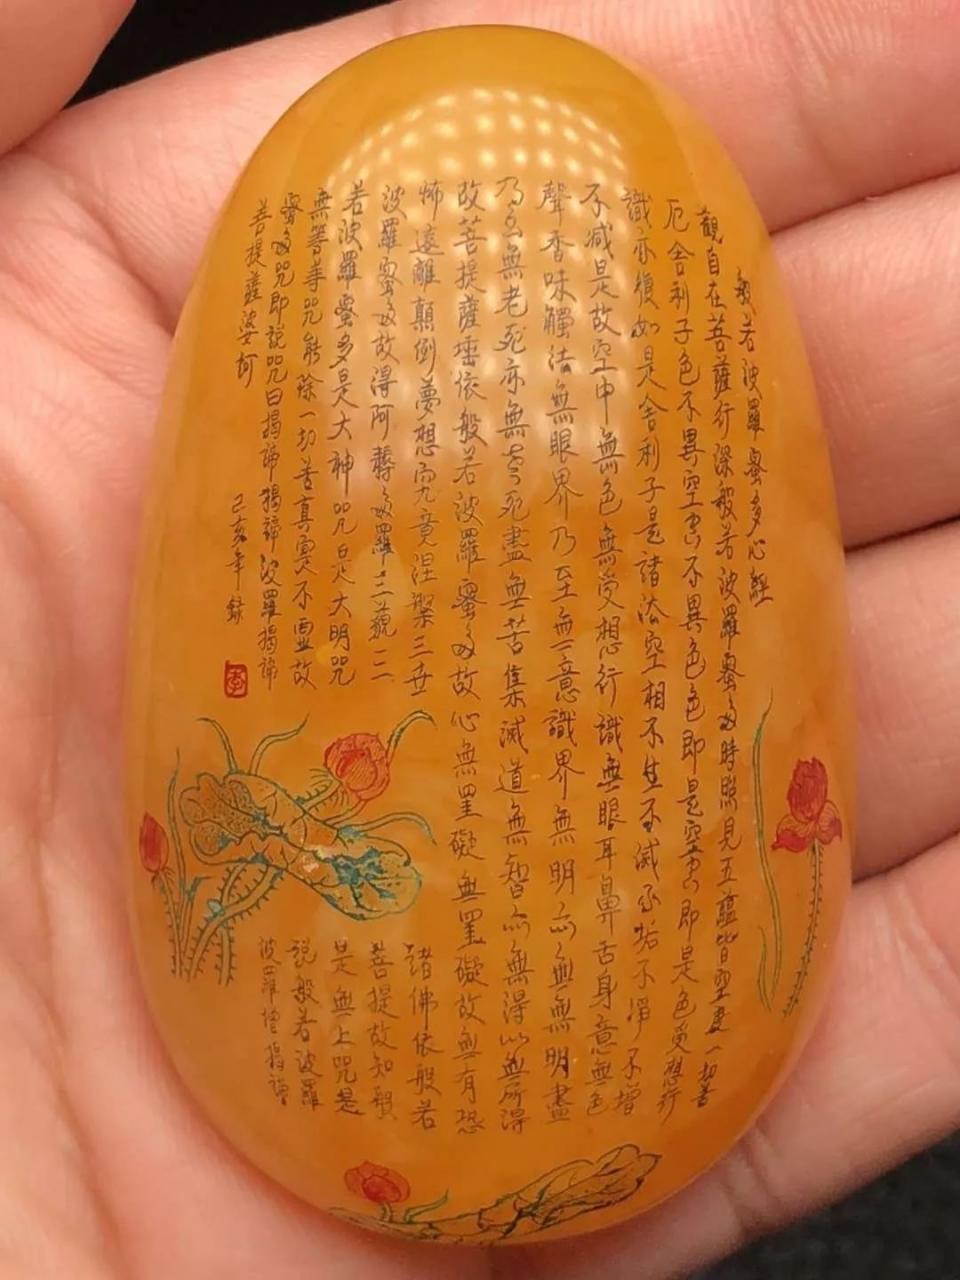 般若波羅蜜多心經
觀自在菩薩行深般若波羅蜜多時照見五蘊皆空度一切苦
厄舍利子色不異空空不異色色即是空空即是色受想行
識亦復如是舍利子是諸法空相不生不滅不垢不淨不增
不減是故空中無色無受想行識無眼耳鼻舌身意無色
聲香味觸法無眼界乃至無意識界無明亦無無明盡
乃至無老死亦無老死盡無苦集滅道無智亦無得以無所得
故菩提薩埵依般若波羅蜜多故心無罣礙無罣礙故無有恐
怖遠離顛倒夢想究竟涅槃三世諸佛依般若
波羅蜜多故得阿耨多羅三藐三菩提故知般
若波羅蜜多是大神咒是大明咒是無上咒是
無等等咒能除一切苦真實不虛故說般若波羅
蜜多咒即說咒曰揭諦揭諦波羅揭諦波羅僧揭諦
菩提薩婆訶
己亥年錄
李